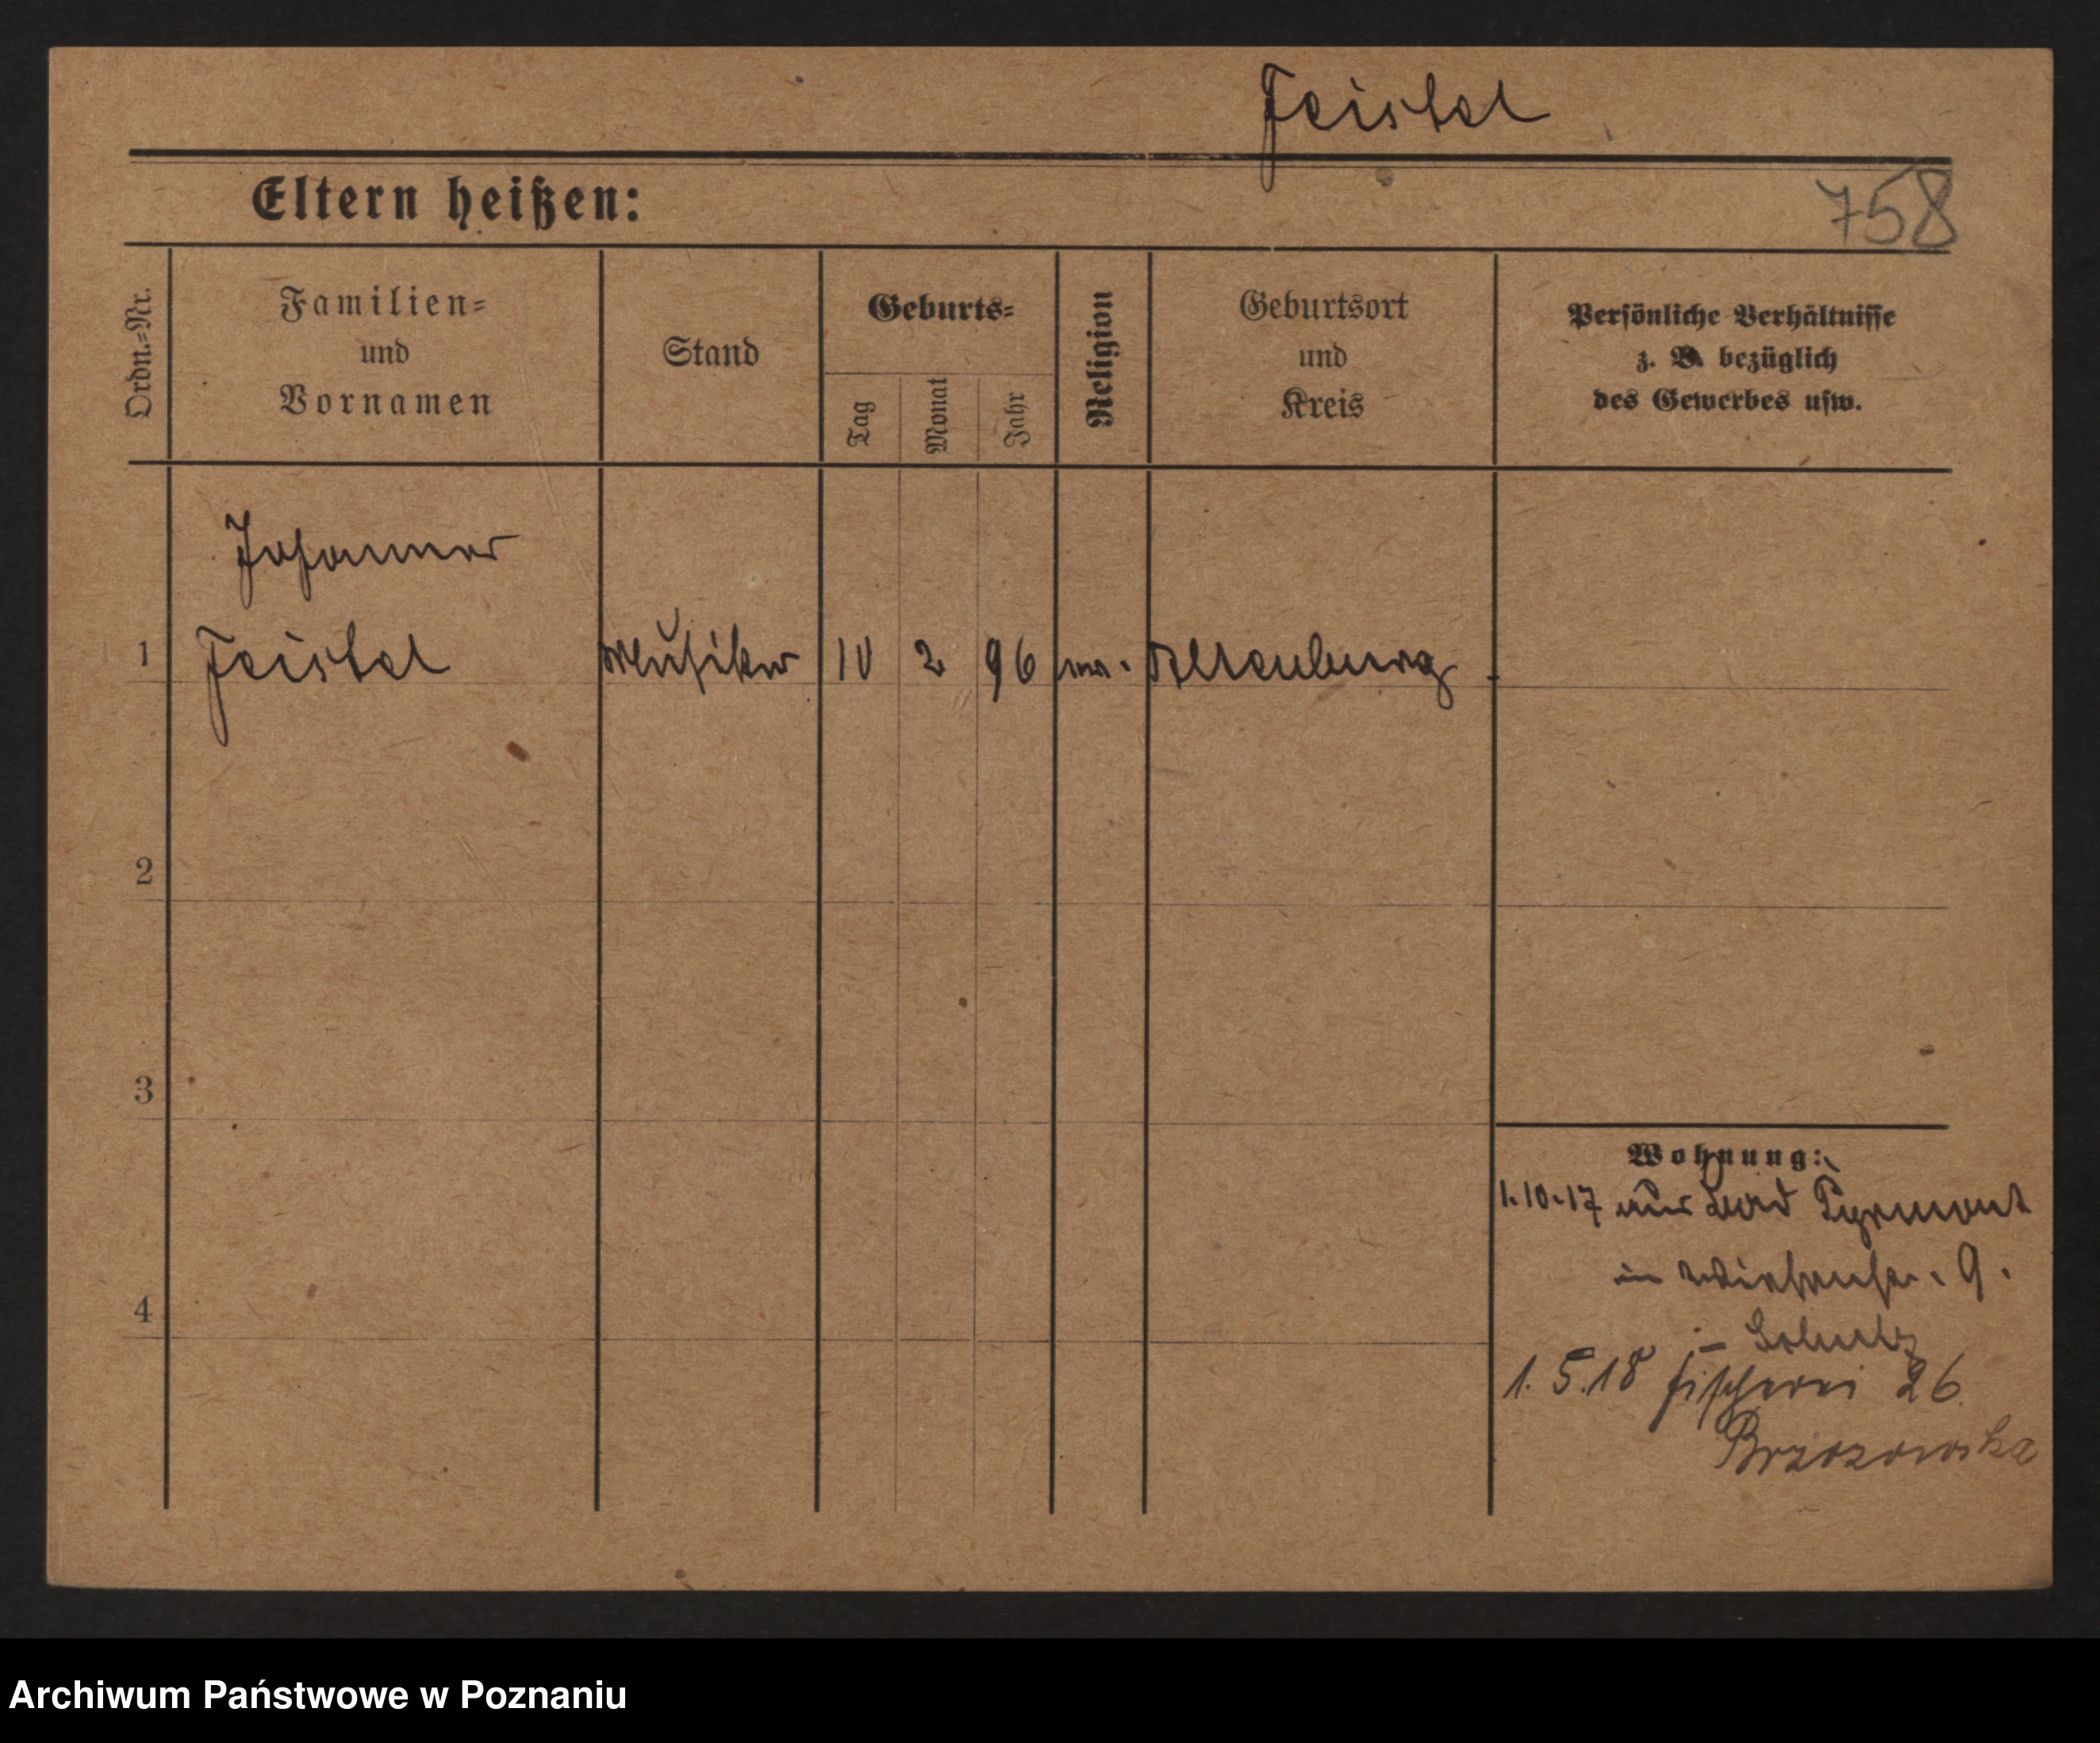 Feistel
Eltern heißen:
758
Ordn.-Nr.
Familien-
und
Vornamen
Stand
Geburts-
Tag
Monat
Jahr
Religion
Geburtsort
und
Kreis
Persönliche Verhältnisse
z. B. bezüglich
des Gewerbes usw.
Johannes
1 Feistel Musiker 10 2 96 ev. Altenburg
2
3
4
Wohnung:
1.10.17 aus Bad Pyrmont
in 9.
1.5.18 Fischerei 26
Brzozowska
Archiwum Państwowe w Poznaniu